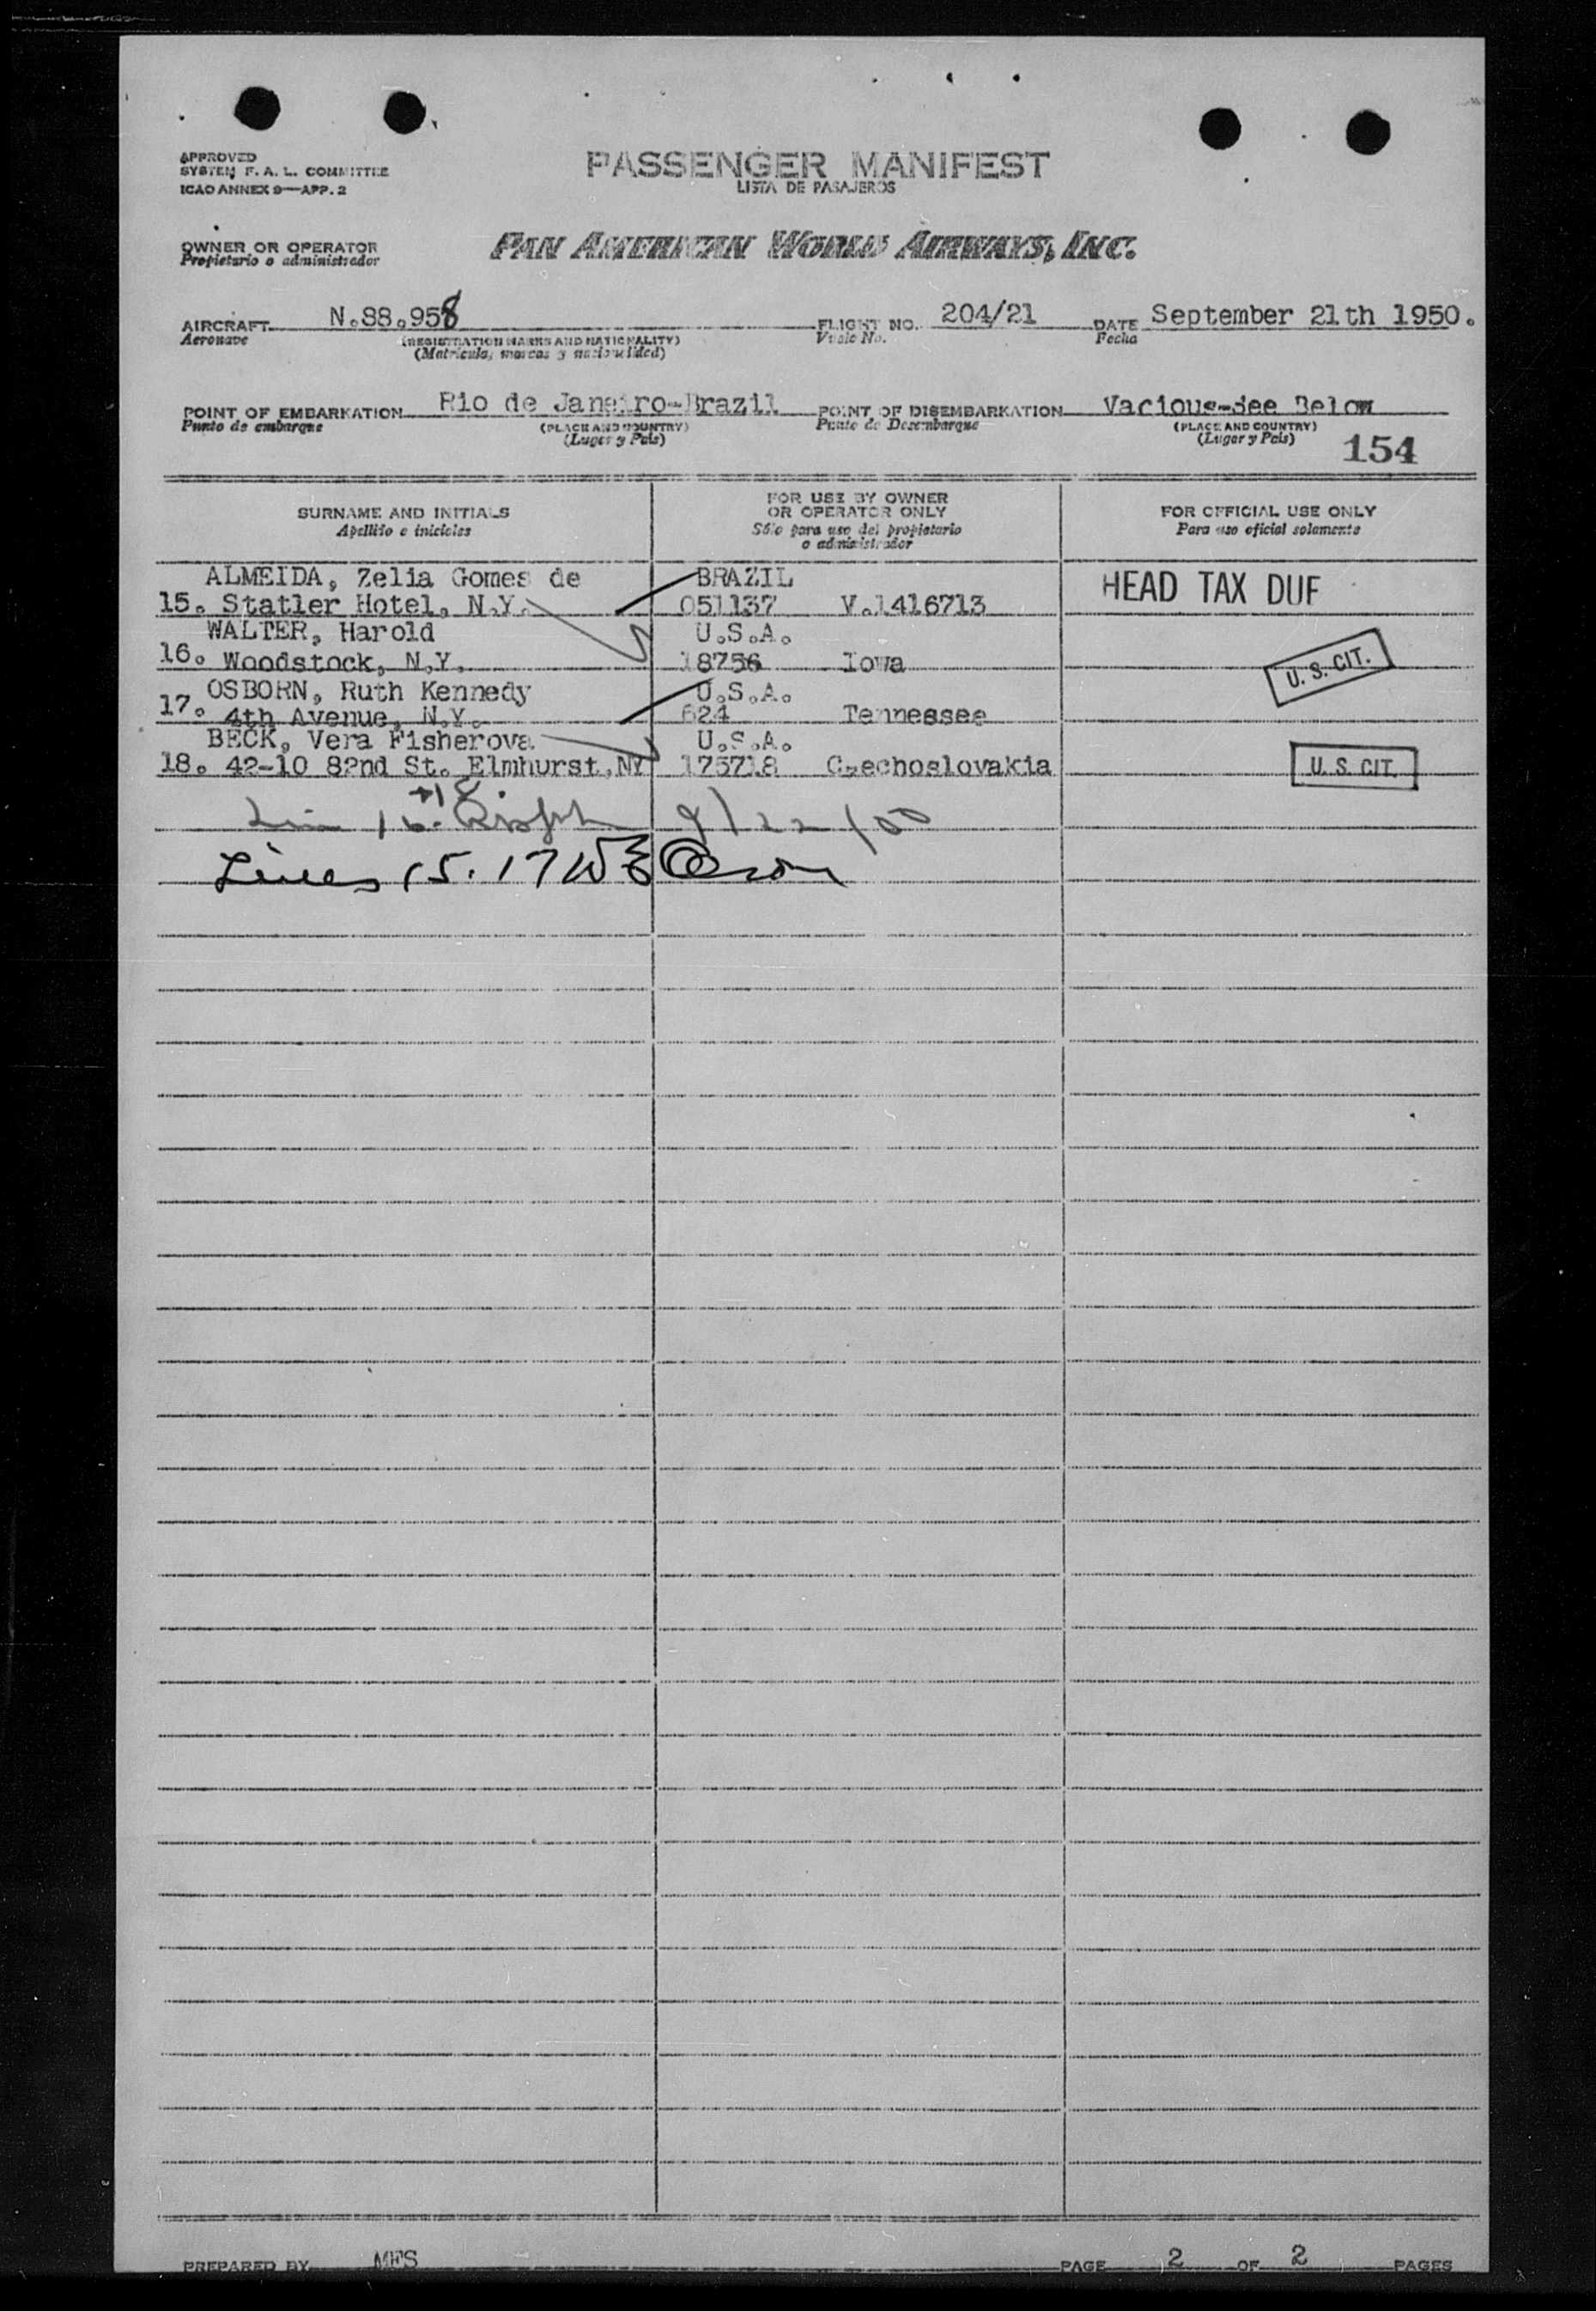 APPROVED
SYSTEM F. A. L. COMMITTEE
ICAO ANNEX 9—APP. 2
PASSENGER MANIFEST
LISTA DE PASAJEROS
OWNER OR OPERATOR
Propietario o administrador
PAN AMERICAN WORLD AIRWAYS, INC.
AIRCRAFT N.88.958 FLIGHT NO. 204/21 DATE September 21th 1950.
Aeronave (REGISTRATION MARKS AND NATIONALITY) Vuelo No. Fecha
(Matricula, marcas y nacionalidad)
POINT OF EMBARKATION Rio de Janeiro-Brazil POINT OF DISEMBARKATION Vacious-See Below
Punto de embarque (PLACE AND COUNTRY) Punto de Desembarque (PLACE AND COUNTRY)
(Lugar y Pais) (Lugar y Pais) 154
SURNAME AND INITIALS FOR USE BY OWNER OR OPERATOR ONLY FOR OFFICIAL USE ONLY
Apellido e iniciales Sólo para uso del propietario o administrador Para uso oficial solamente
ALMEIDA, Zelia Gomes de BRAZIL HEAD TAX DUE
15. Statler Hotel, N.Y. 051137 V.1416713
WALTER, Harold U.S.A.
16. Woodstock, N.Y. 18756 Iowa U. S. CIT.
OSBORN, Ruth Kennedy U.S.A.
17. 4th Avenue, N.Y. 624 Tennessee
BECK, Vera Fisherova U.S.A.
18. 42-10 82nd St. Elmhurst,NY 175718 Czechoslovakia U. S. CIT.
+18
16. 9/22/50
Lines 15. 17
PREPARED BY MFS PAGE 2 OF 2 PAGES